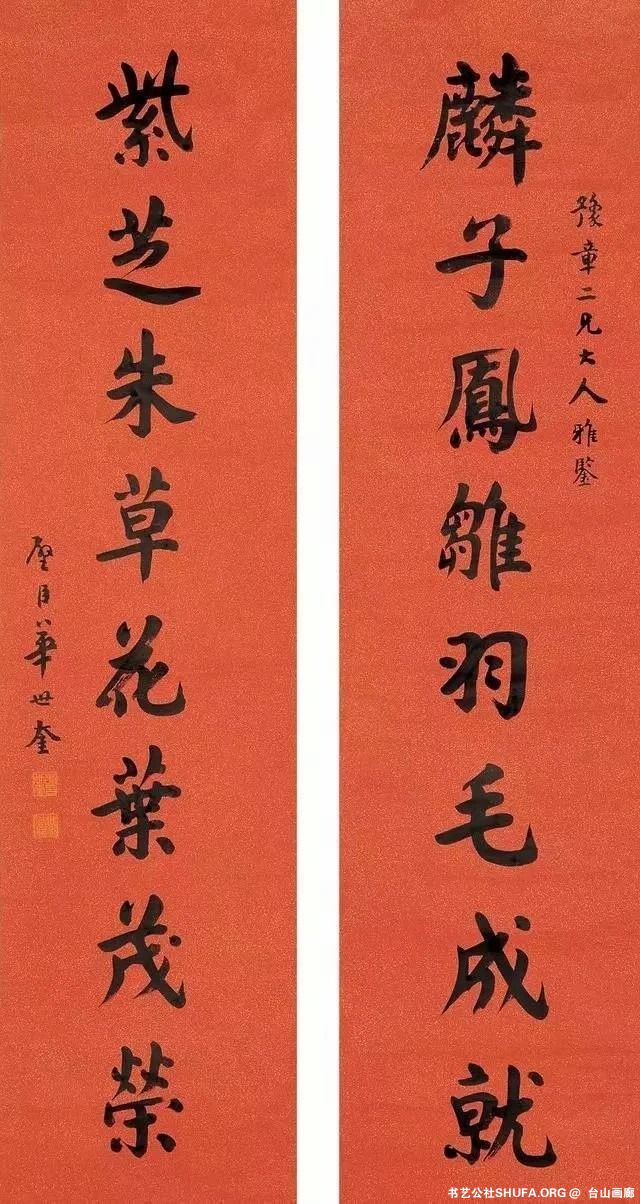 豫章二兄大人雅鑒
麟子鳳雛羽毛成就
紫芝朱草花葉茂榮
華世奎
书艺公社SHUFA.ORG @ 台山画廊